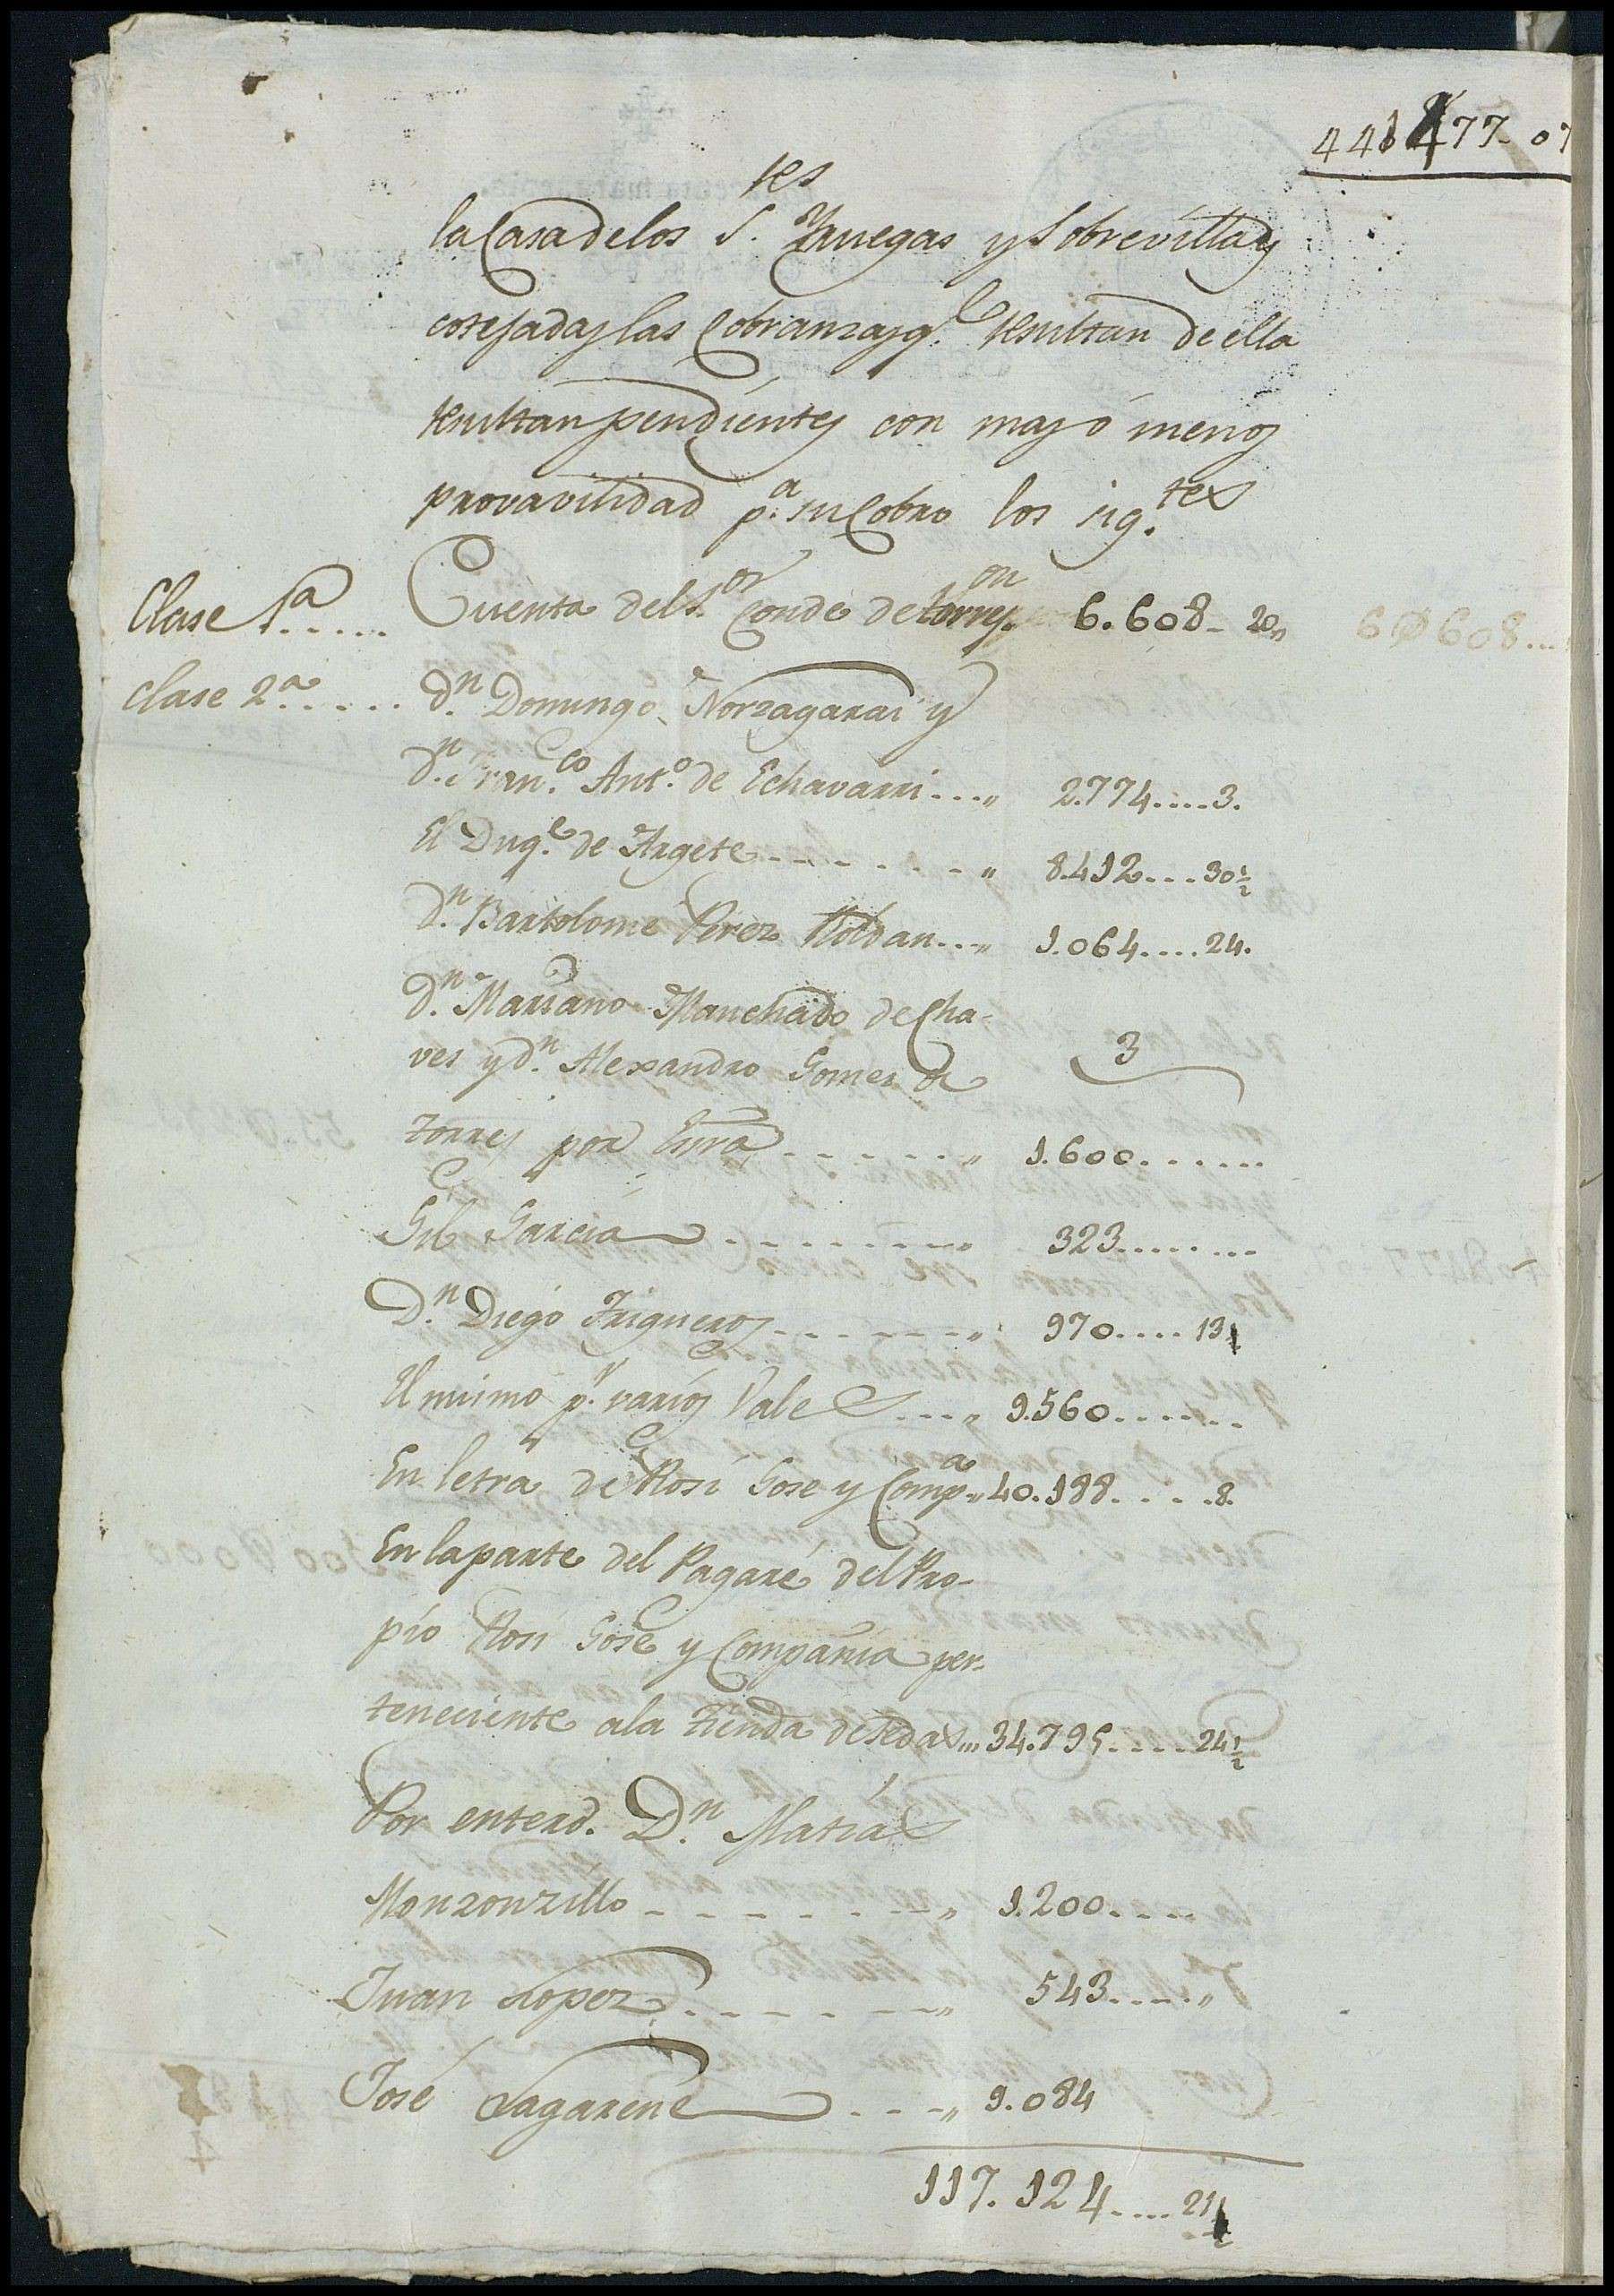 la Casa de los S.res Yruegas y Sobrevilla y
cotejadas las Cobranzas q.e resultan de ella
resultan pendientes con mas ó menos
provavilidad p.a su Cobro los sig.tes
Clase 1.a..... Cuenta del S.or Conde de torres.on 6.608- 20,,
6Ø608...
clase 2.a..... d.n Domingo Norzagarai y
d.n Fran.co Ant.o de Echavarri...,, 2.774.....3.
El Duq.e de Argete - - - - - - ,, 8.412....30½
d.n Bartolome Perez Roldan...,, 1.064....24.
d.n Mariano Manchado de Cha-
ves y d.n Alexandro Gomez de
3
torres por Esra - - - - - - ,, 1.600.......
Gil Garcia - - - - - - ,, 323........
D.n Diego Trigueros - - - - - - ,, 970....13
El mismo p.r varios Vales....,, 9.560.......
En letra de Rosi Gose y Comp.a,, 40.188.....8.
En la parte del Pagaré del Pro-
pio Rosi Gose y Compañia per-
teneciente a la tienda de sedas... 34.795....24½
Por enterd. D.n Matias
Monzonzillo - - - - - - ,, 1.200....
Juan Lopez - - - - - - ,, 543.....,,
José Lagarene - - - ,, 9.084
117.124....21